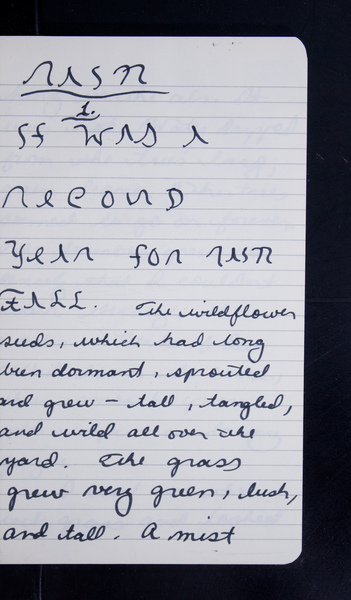 RAIN
1.
It WAS A
RECORD
YEAR for RAIN
FALL. The wildflower
seeds, which had long
been dormant, sprouted
and grew – tall, tangled,
and wild all over the
yard. The grass
grew very green, lush,
and tall. A mist